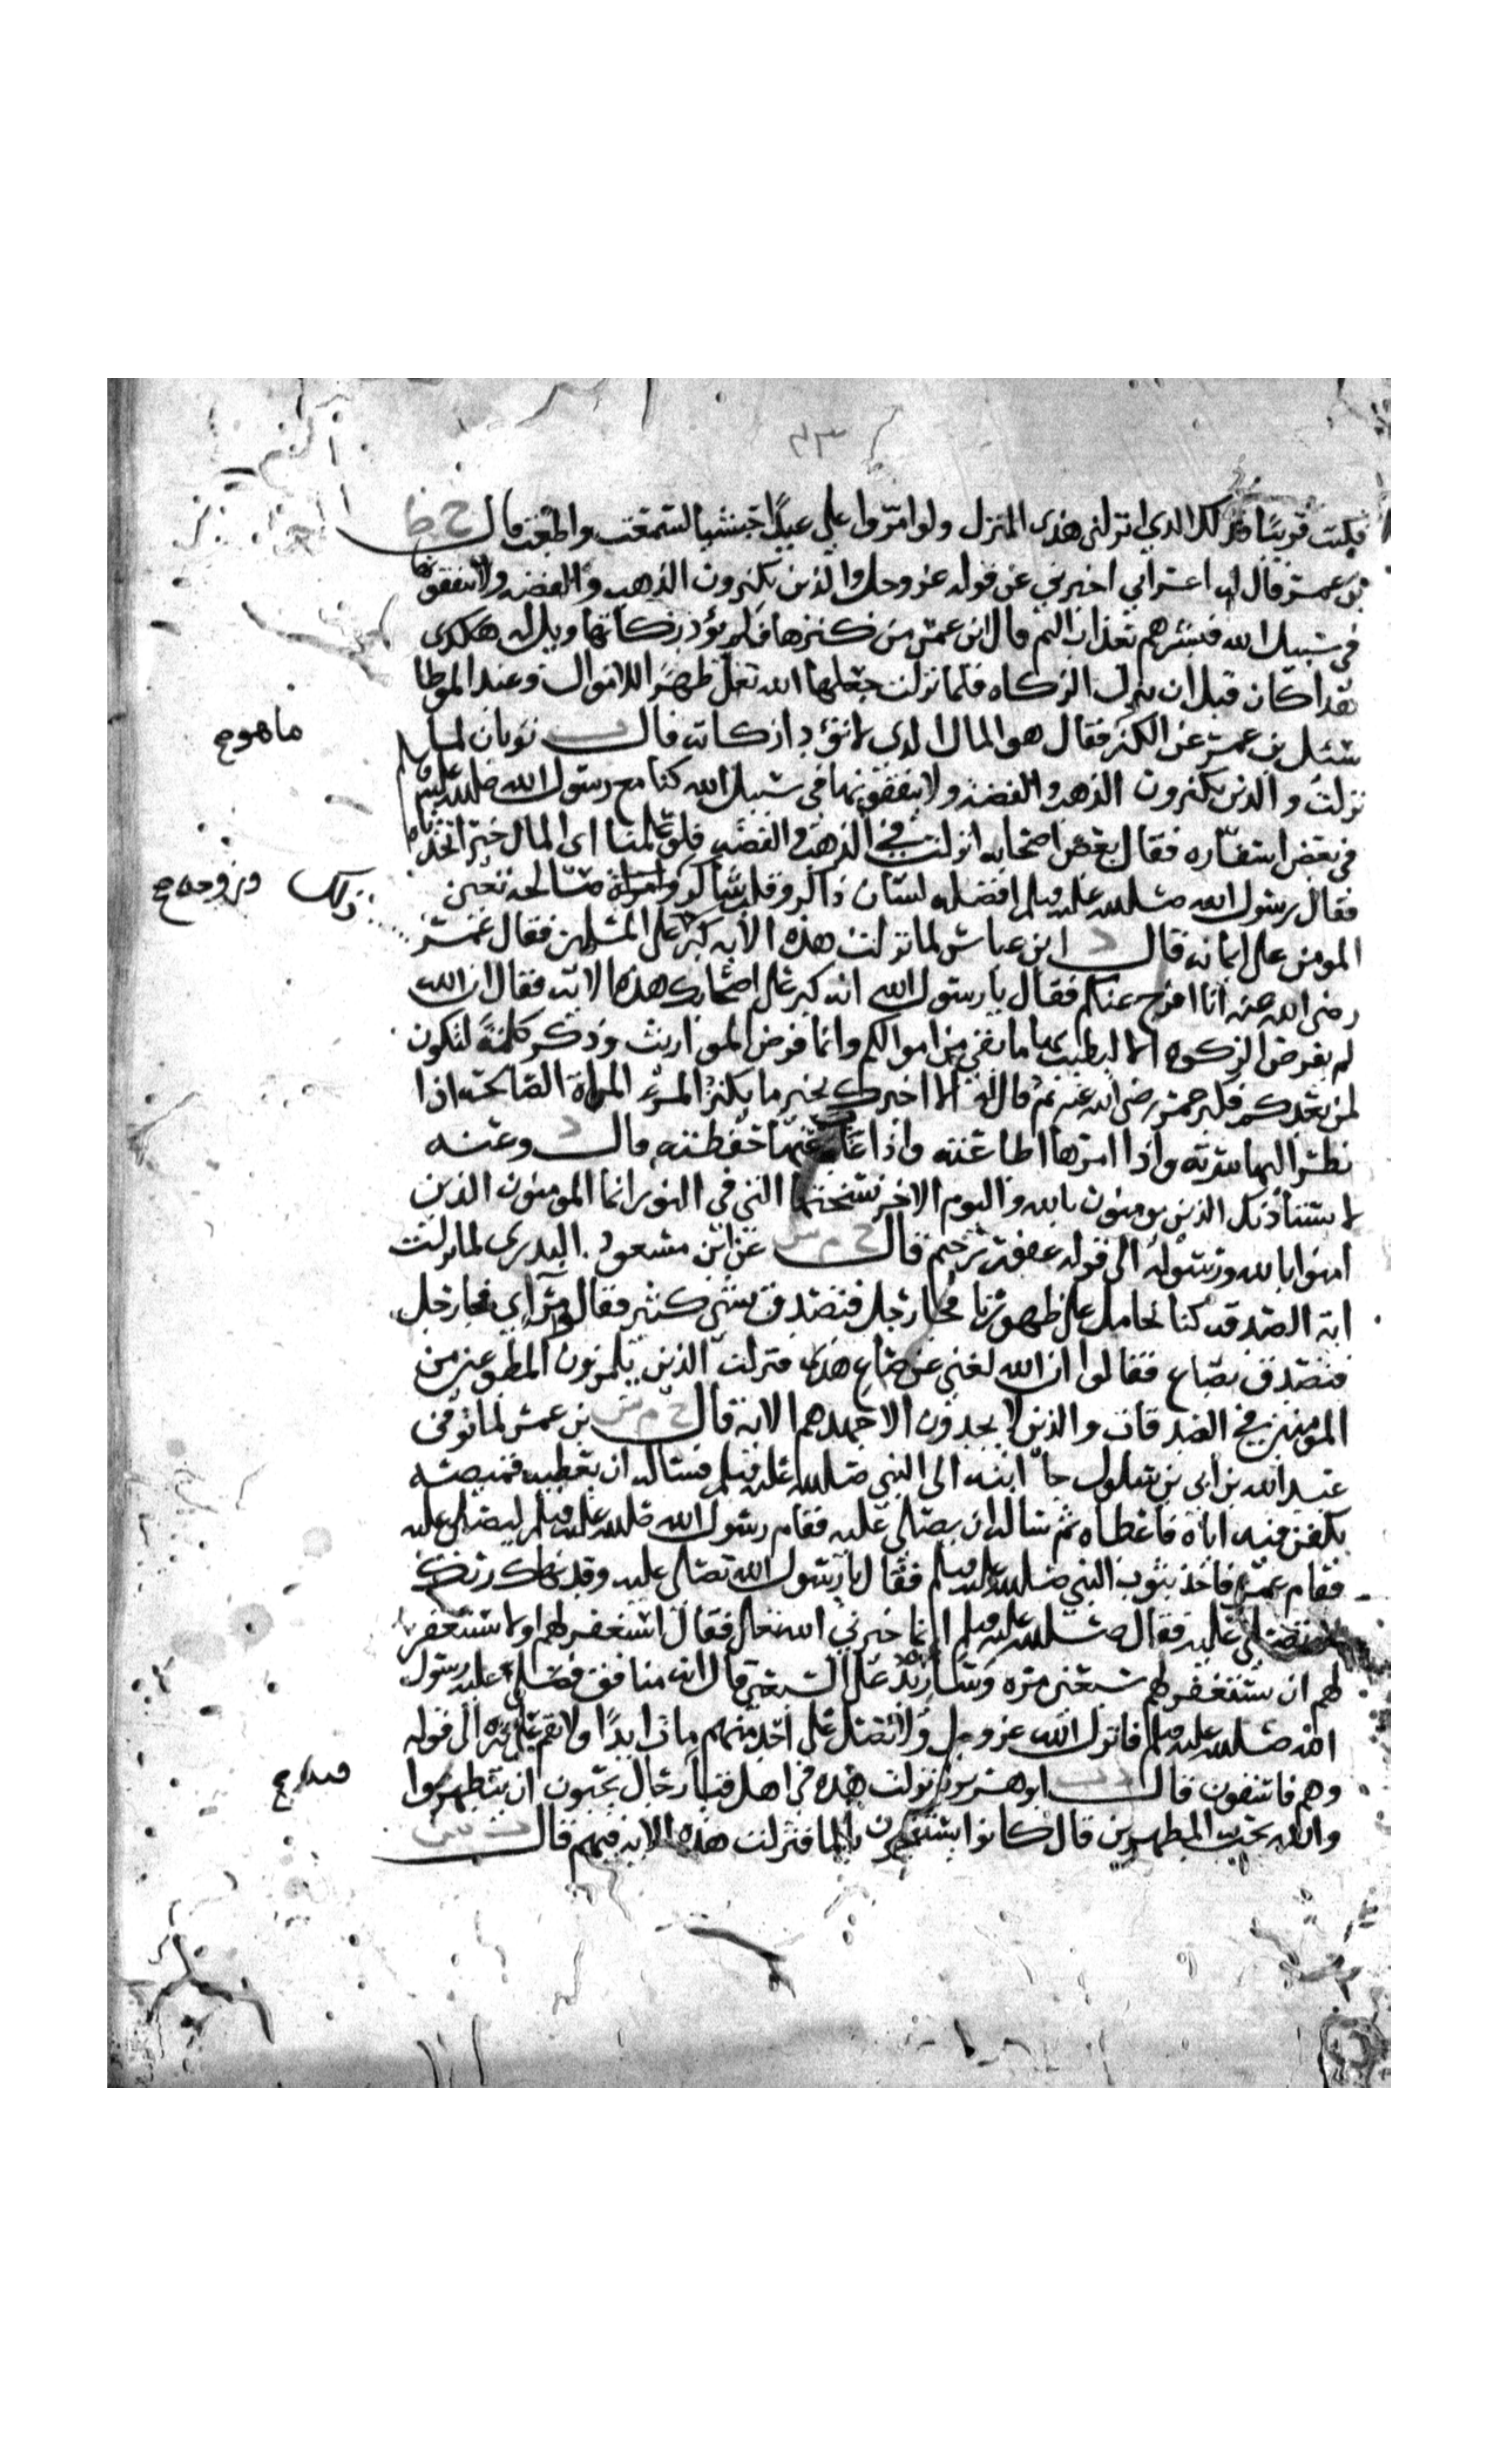 فكنت قريبًا فذلك الذي انزلني هذا المنزل ولو امّروا علي عبدًا حبشيا لسمعت واطعت قال خ ط
بن عمر قال له اعرابي اخبرني عن قوله عز وجل والذين يكنزون الذهب والفضه ولا ينفقونها
في سبيل الله فبشرهم بعذاب اليم قال ابن عمر من كنزها فلم يؤد زكاتها ويل له هذا
كان قبل ان ينزل الزكاه فلما نزلت جعلها الله تعلى طهرًا للاموال وعند الموطا
سئل بن عمر عن الكنز فقال هو المال الذي لا تؤدا زكاته قال ت ثوبان لما
ما هو ح
نزلت والذين يكنزون الذهب والفضه ولا ينفقونها في سبيل الله كنا مع رسول الله صلى الله عليه وسلم
في بعض اسفاره فقال بعض اصحابه انزلت في الذهب والفضه فلو علمنا اى المال خير اتخذناه
فقال رسول الله صلى الله عليه وسلم افضله لسان ذاكر وقلب شاكر وامراة صالحه تعين
ذلك وزوجه ح
المومن على ايمانه قال د ابن عباس لما نزلت هذه الايه كبر على المسلمين فقال عمر
رضى الله عنه انا افرج عنكم فقال يا رسول الله انه كبر على اصحابك هذه الايه فقال ان الله
لم يفرض الزكوه الا ليطيب بها ما بقي من اموالكم وانما فرض المواريث وذكر كلمةً لتكون
لمن بعدكم فكبر عمر رضى الله عنه ثم قال له الا اخبرك بخير ما يكنز المرء المراة الصالحه اذا
نظر اليها سرته واذا امرها اطاعته واذا غاب عنها حفظته قال د وعنه
لا يستأذنك الذين يومنون بالله واليوم الاخر نسختها التي في النور انما المومنون الذين
امنوا بالله ورسوله الى قوله غفور رحيم قال خ م س عن ابن مسعود البدري لما نزلت
اية الصدقه كنا نحامل على ظهورنا فجا رجل فتصدق بشي كثير فقالوا مرآي فجا رجل
فتصدق بصاع فقالوا ان الله لغني عن صاع هذا فنزلت الذين يلمزون المطوعين من
المومنين في الصدقات والذين لا يجدون الا جهدهم الايه قال خ م س بن عمر لما توفى
عبد الله بن ابي بن سلول جا ابنه الى النبي صلى الله عليه وسلم فساله ان يعطيه قميصه
يكفن فيه اباه فاعطاه ثم ساله ان يصلي عليه فقام رسول الله صلى الله عليه وسلم ليصلى عليه
فقام عمر فاخذ بثوب النبي صلى الله عليه وسلم فقال يا رسول الله تصلى عليه وقد نهاك ربك
تصلي عليه فقال صلى الله عليه وسلم انما خيرني الله تعالى فقال استغفر لهم او لا تستغفر
لهم ان تستغفر لهم سبعين مره وسازيد على السبعين قال انه منافق فصلى عليه رسول
الله صلى الله عليه وسلم فانزل الله عز وجل ولا تصل على احد منهم مات ابدًا ولا تقم على قبره الى قوله
وهم فاسقون قال د ت ابو هريره نزلت هذه في اهل قبا رجال يحبون ان يتطهروا
والله يحب المطهرين قال كانوا يستنجون بالما فنزلت هذه الايه فيهم قال ت س